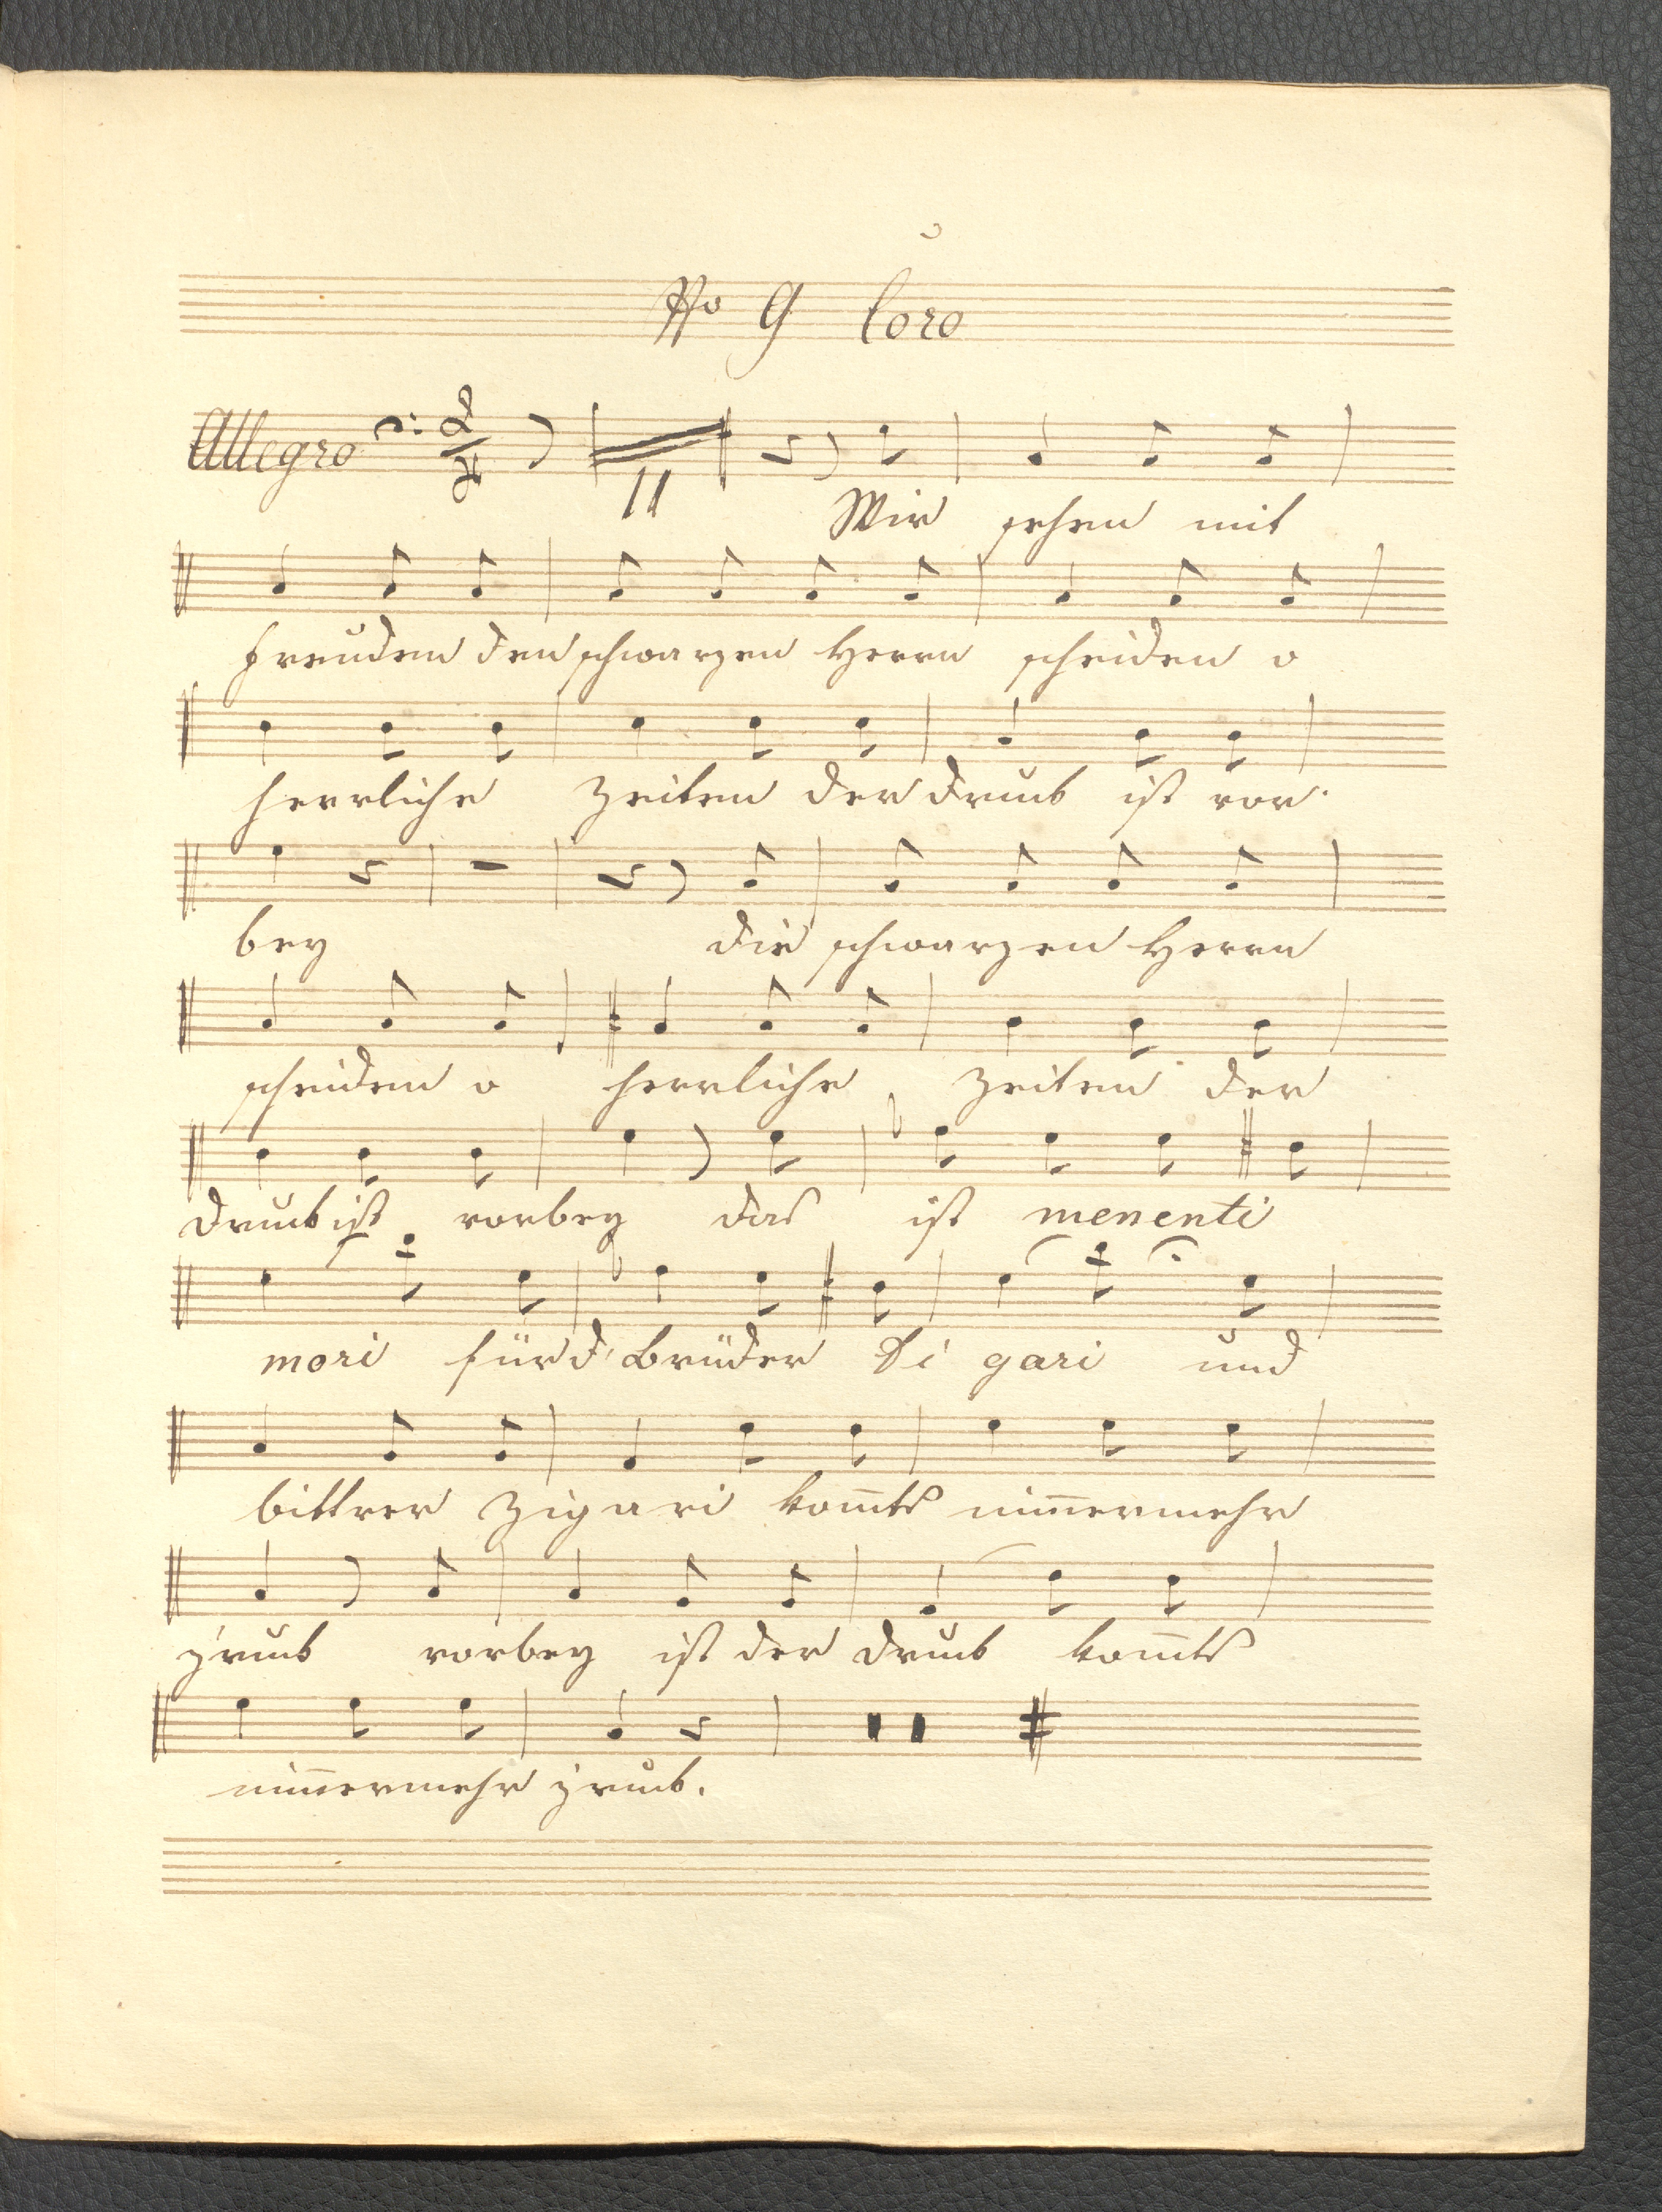 No 9 Coro
Allegro 2/4
11
Wir sehen mit
Freuden den schwarzen Herrn scheiden o
herrliche Zeiten der Druck ist vor-
bey die schwarzen Herrn
scheiden o herrliche Zeiten der
Druck ist vorbey das ist menenti
mori für d' Brüder Zigari und
bittrer Zigari kom̅ts nim̅ermehr
z'ruck vorbey ist der Druck kom̅ts
nim̅ermehr z'ruck.